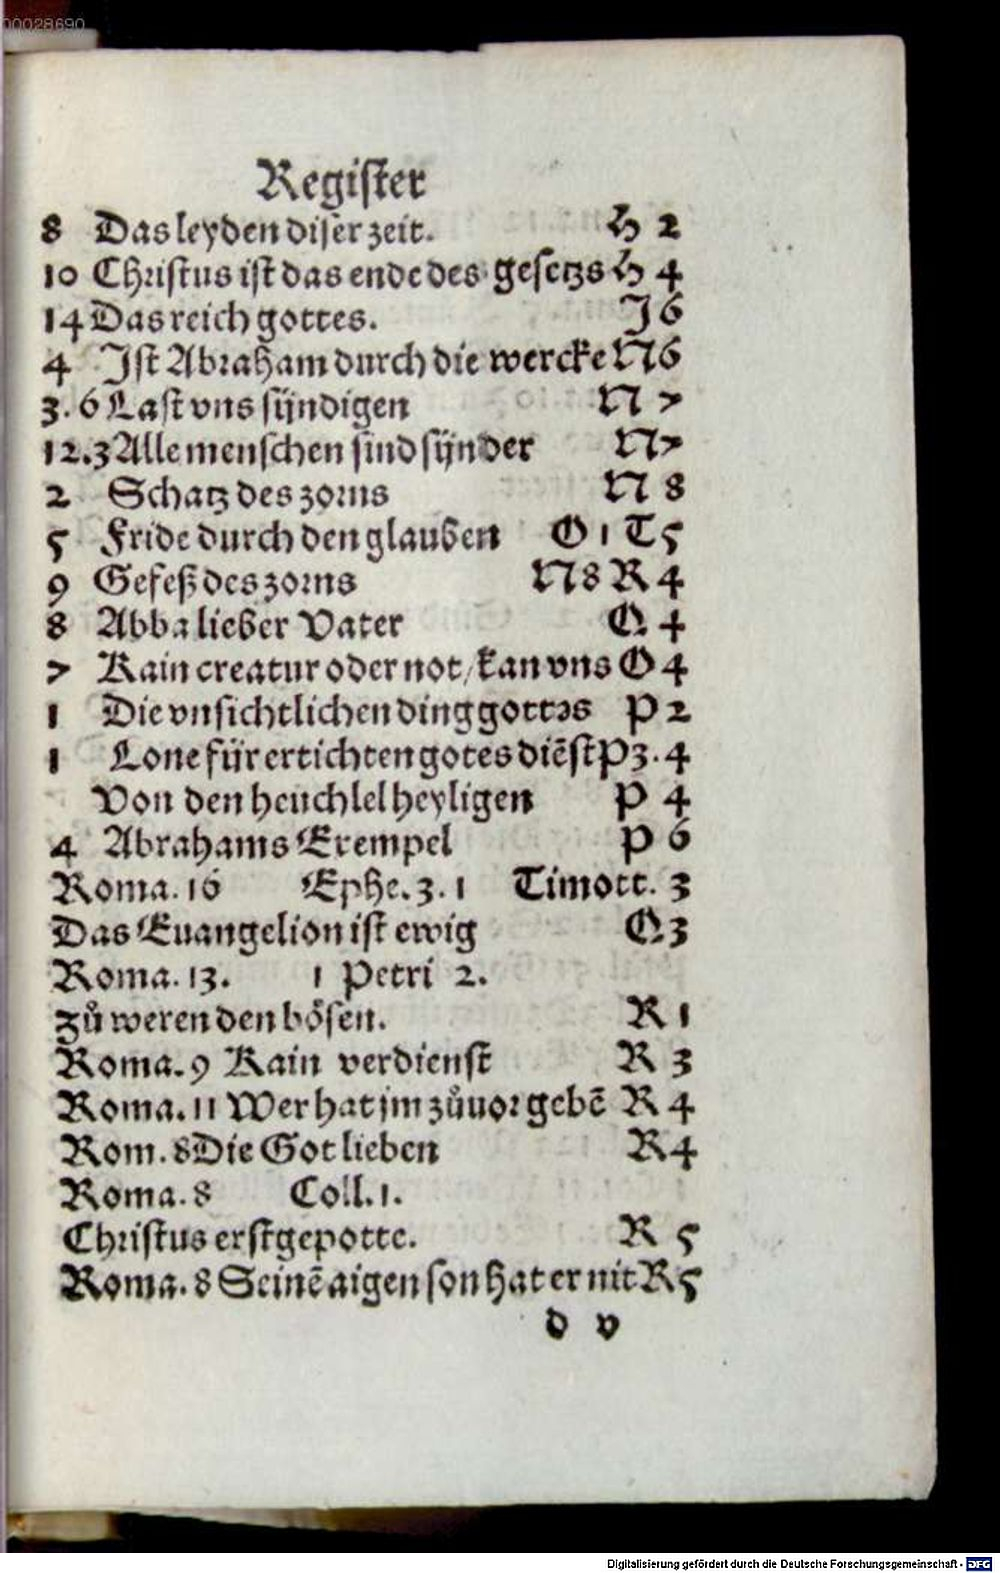 00028690
Register
8 Das leyden diser zeit. H 2
10 Christus ist das ende des gesetzs H 4
14 Das reich gottes. J 6
4 Ist Abraham durch die wercke N 6
3. 6 Last vns sündigen N 7
12.3 Alle menschen sind sünder N 7
2 Schatz des zorns N 8
5 Fride durch den glauben O 1 T 5
9 Gefeß des zorns N 8 R 4
8 Abba lieber Vater Q 4
7 Kain creatur oder not/ kan vns O 4
1 Die vnsichtlichen ding gottes P 2
1 Lone für ertichten gotes diēst P 3. 4
Von den heuchlel heyligen P 4
4 Abrahams Exempel P 6
Roma. 16 Ephe. 3. 1 Timott. 3
Das Euangelion ist ewig Q 3
Roma. 13. 1 Petri 2.
zů weren den bösen. R 1
Roma. 9 Kain verdienst R 3
Roma. 11 Wer hat jm zůuor gebē R 4
Rom. 8 Die Got lieben R 4
Roma. 8 Coll. 1.
Christus erstgepotte. R 5
Roma. 8 Seinē aigen son hat er nit R 5
d v
Digitalisierung gefördert durch die Deutsche Forschungsgemeinschaft - DFG